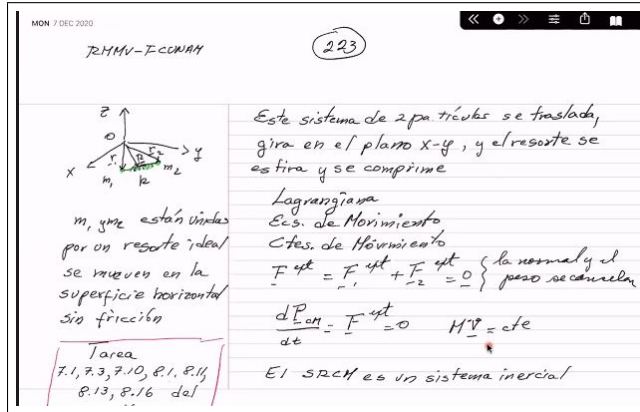 MON 7 DEC 2020
RMMV-FCUNAM
223
z
O
y
x
r₁
R
r₂
m₁
m₂
k
m, y m₂ están unidas
por un resorte ideal
se mueven en la
superficie horizontal
sin fricción
Tarea
7.1, 7.3, 7.10, 8.1, 8.11,
8.13, 8.16 del
Este sistema de 2 partículas se traslada,
gira en el plano x-y, y el resorte se
estira y se comprime
Lagrangiana
Ecs. de Movimiento
Ctes. de Movimiento
F^ext = F₁^ext + F₂^ext = 0 } la normal y el
peso se cancelan
dP_CM/dt = F^ext = 0 MV = cte
El SRCM es un sistema inercial